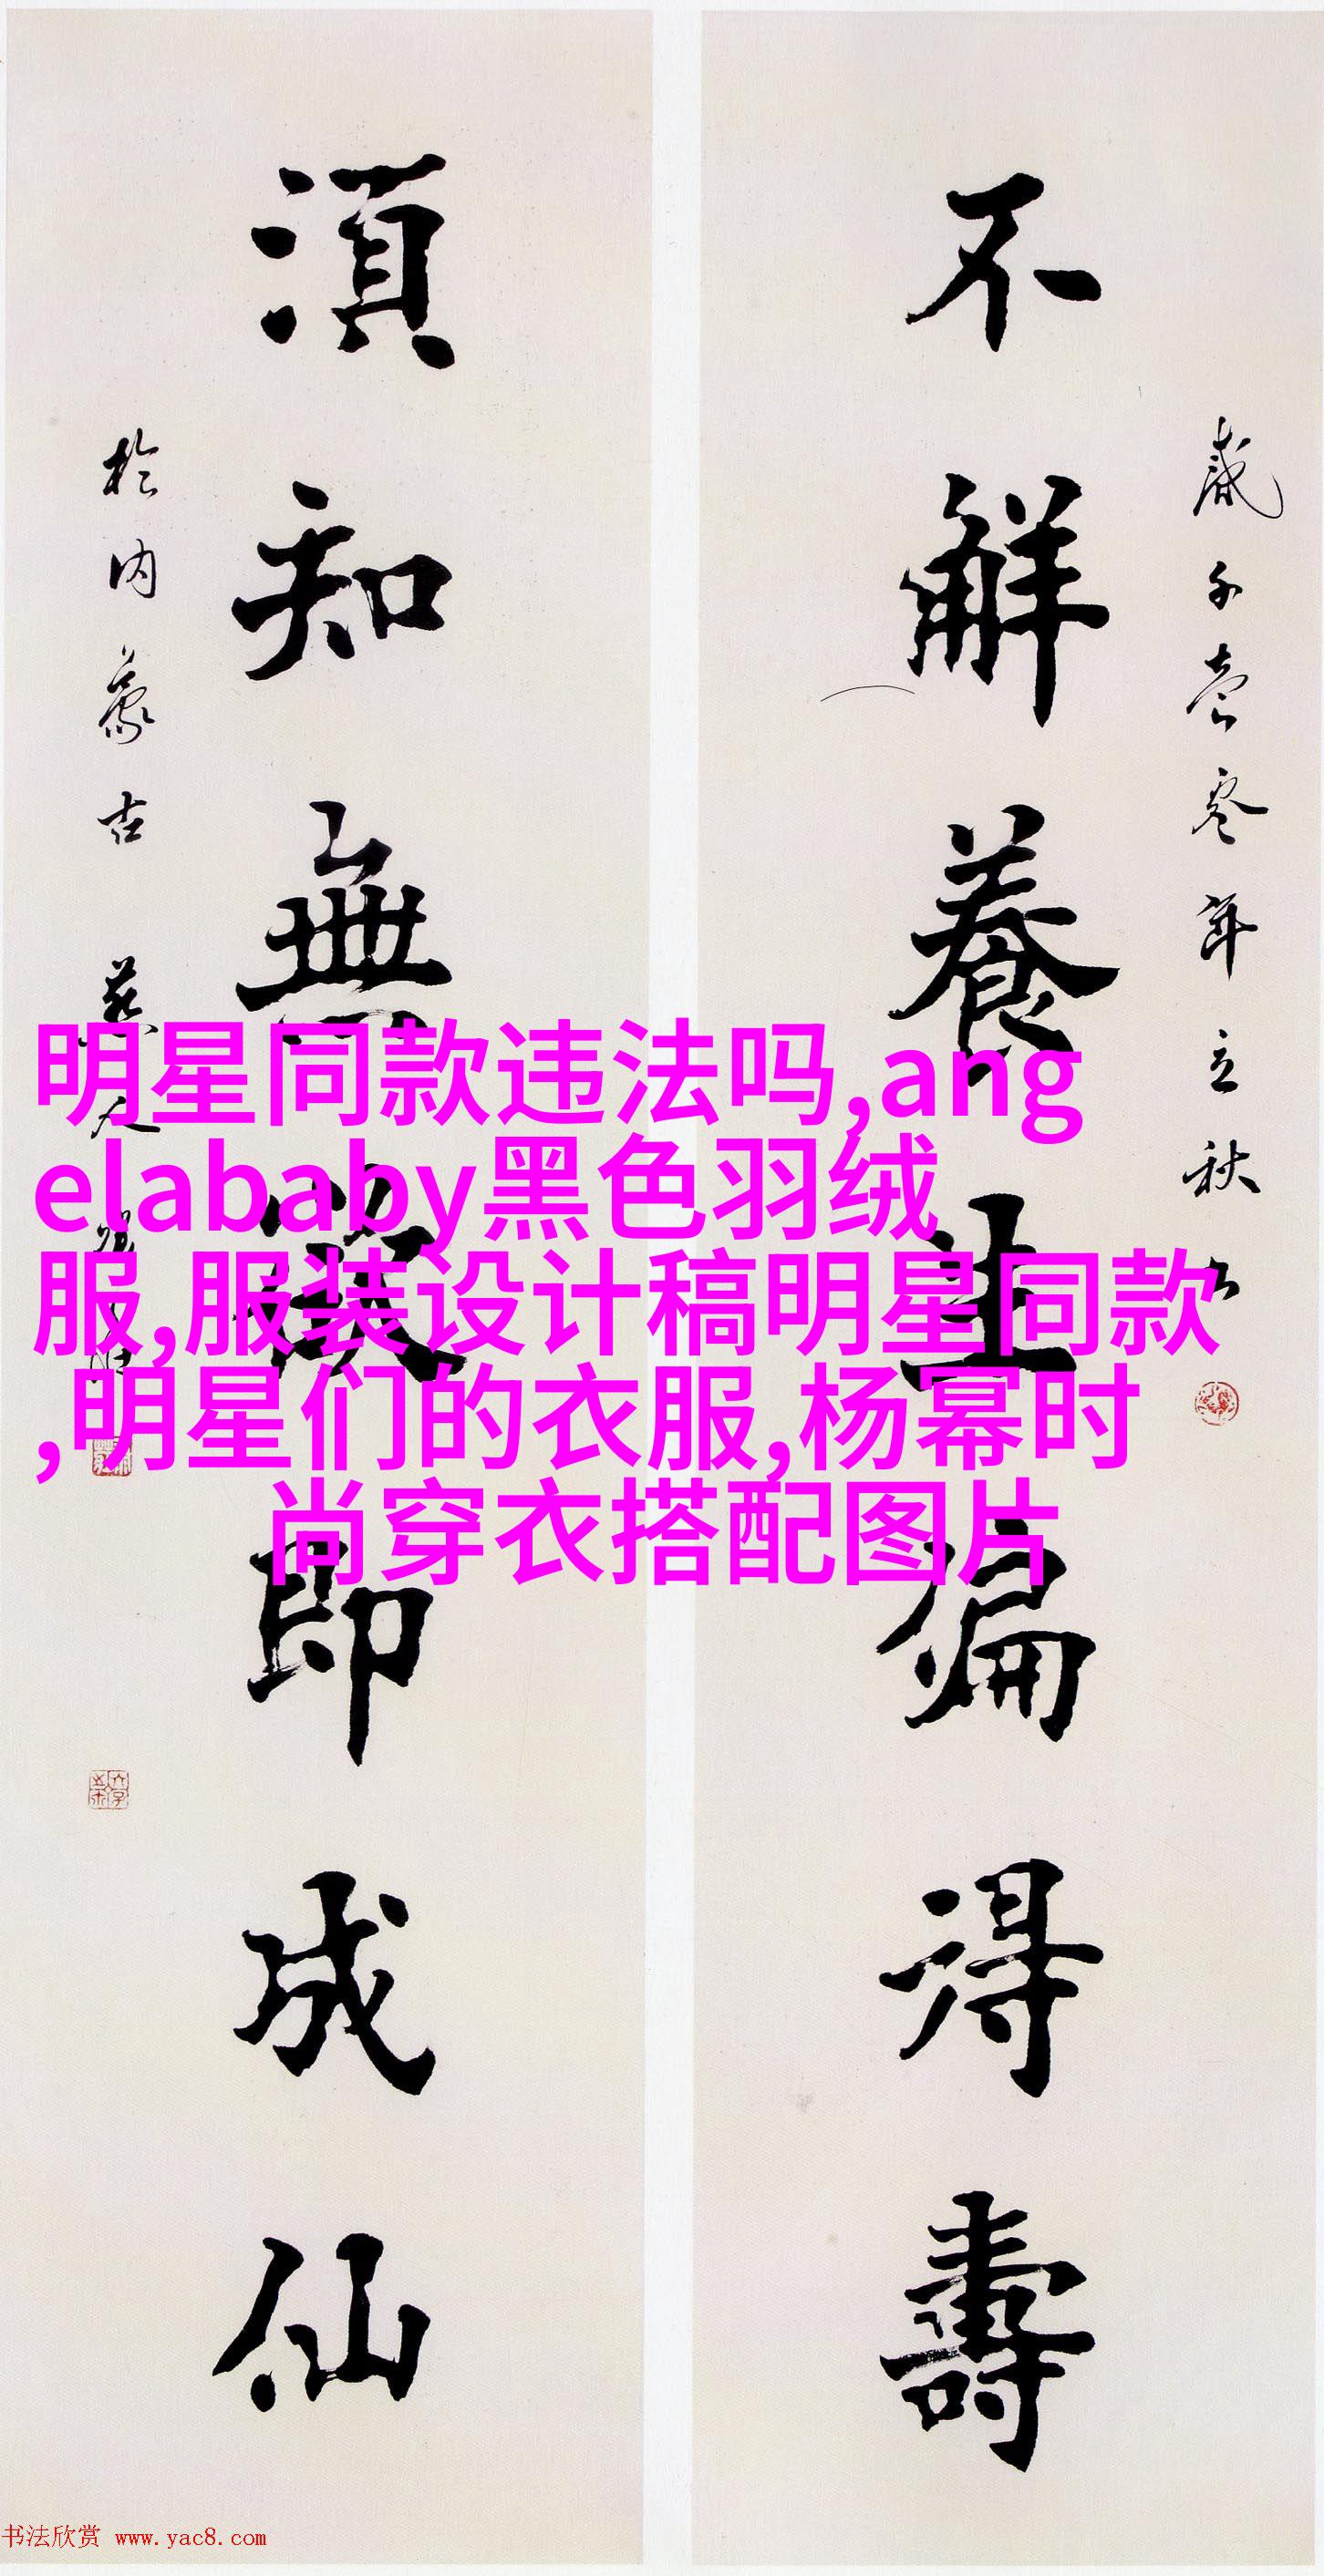 不解養生偏得壽
歲千壹零年立秋
須知無欲即成仙
於内蒙古
明星同款违法吗,ang
elababy黑色羽绒
服,服装设计稿明星同款
,明星们的衣服,杨幂时
尚穿衣搭配图片
书法欣赏 www.yac8.com